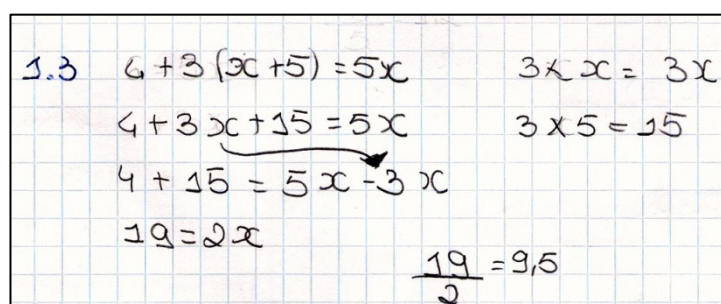 1.3 4 + 3 (x + 5) = 5x 3 × x = 3x
4 + 3x + 15 = 5x 3 × 5 = 15
4 + 15 = 5x - 3x
19 = 2x
19/2 = 9,5